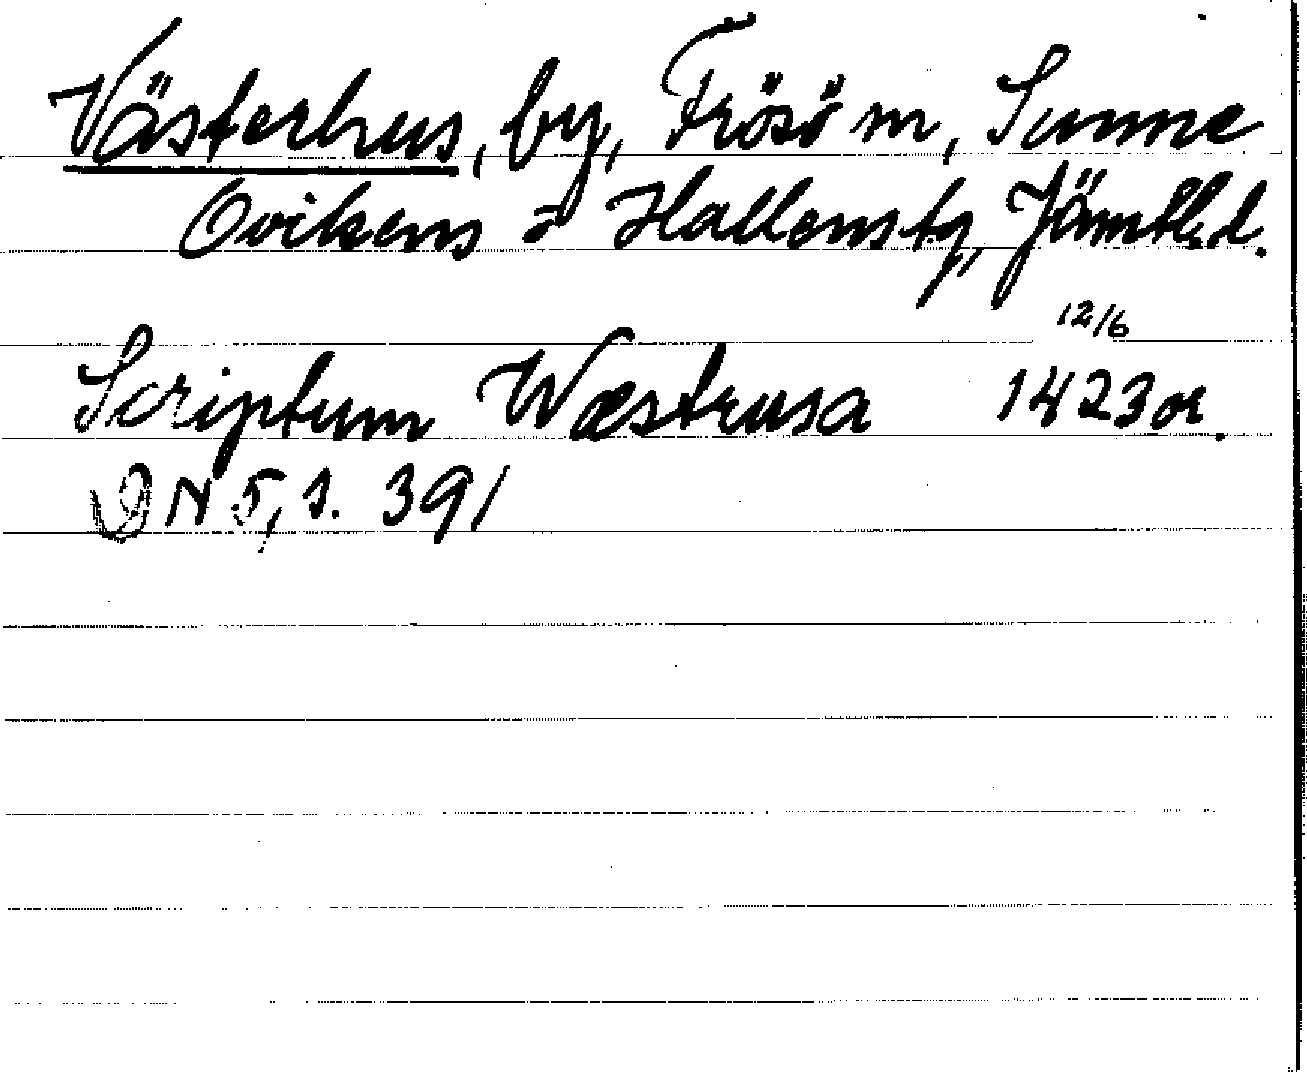 Västerhus, by, Frösö sn, Sunne
Ovikens o Hallens tg, Jämtl.
12/6
Scriptum Wæstrusa 1423 or.
DN 5, s. 391